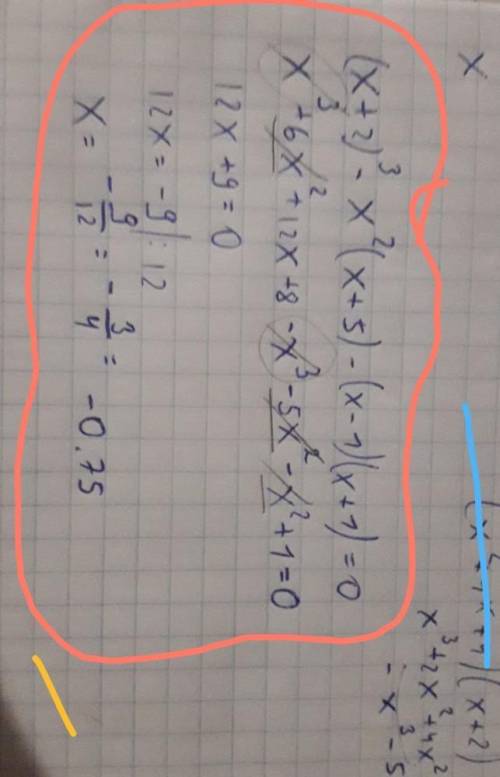 x
(x+2)³ - x²(x+5) - (x-1)(x+1) = 0
x³+6x²+12x+8 -x³-5x²-x²+1=0
12x+9=0
12x = -9 |:12
x = -9/12 = -3/4 = -0.75
(x+2)
x³+2x²+4x²
- x³ - 5